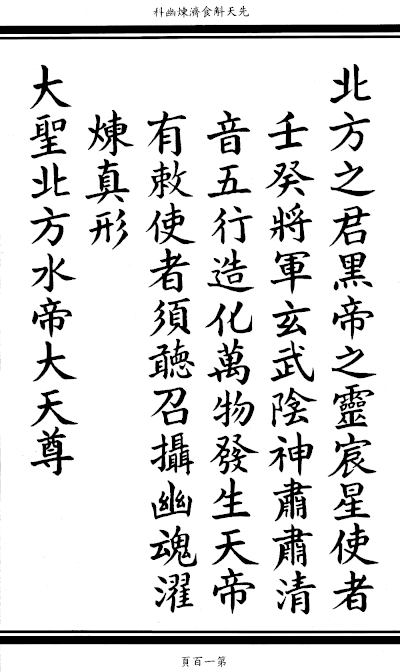 先天斛食濟煉幽科
北方之君黑帝之靈宸星使者
壬癸將軍玄武陰神肅肅清
音五行造化萬物發生天帝
有敕使者須聽召攝幽魂濯
煉真形
大聖北方水帝大天尊
第一百頁